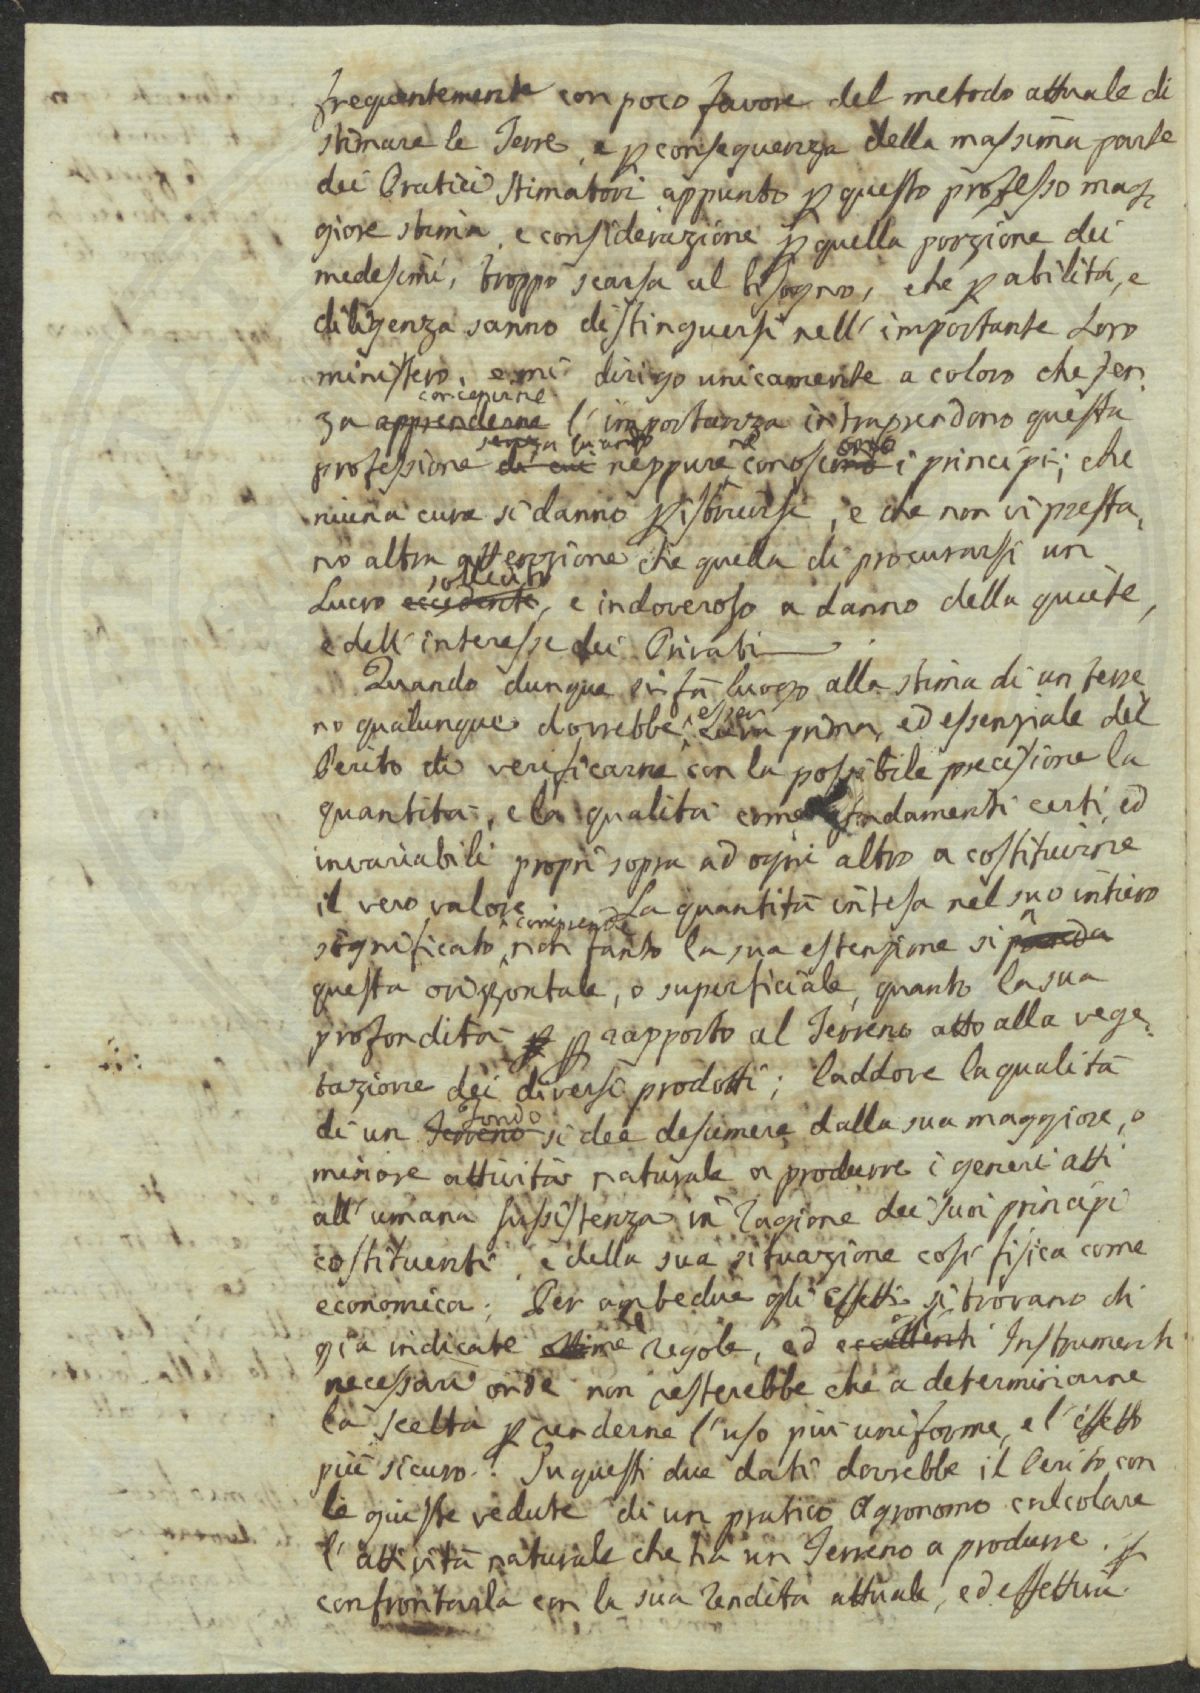 frequentemente con poco favore del metodo attuale di
stimare le Terre, e p conseguenza della massima parte
dei Pratici stimatori appunto p questo professo mag-
giore stima, e considerazione p quella porzione dei
medesimi, troppo scarsa al bisogno, che p abilità, e
diligenza sanno distinguersi nell' importante Loro
ministero, e mi dirigo unicamente a coloro che sen-
concepirne
za apprenderne l' importanza intraprendono questa
senza
professione di cui neppure ne conoscono i principi; che
niuna cura si danno p istruirsi, e che non vi presta-
no altra attenzione che quella di procurarsi un
sollecito
Lucro eccedente, e indoveroso a danno della quiete,
e dell' interesse dei Privati
Quando dunque si fà luogo alla stima di un terre
esser
no qualunque dovrebbe cura prima, ed essenziale del
Perito di verificarne con la possibile precisione la
quantità, e la qualità come fondamenti certi, ed
invariabili proprj sopra ad ogni altro a costituirne
il vero valore. La quantità intesa nel suo intiero
comprende
significato, non tanto la sua estensione si
questa orizzontale, o superficiale, quanto la sua
profondità p p rapporto al Terreno atto alla vege-
tazione dei diversi prodotti; laddove la qualità
fondo
di un Terreno si dee desumere dalla sua maggiore, o
minore attività naturale a produrre i generi atti
all' umana sussistenza in ragione dei suoi principi
costituenti, e della sua situazione così fisica come
economica. Per ambedue gli effetti si trovano di
già indicate ottime regole, ed eccellenti Instrumenti
necessari onde non resterebbe che a determinarne
la scelta p renderne l' uso più uniforme, e l' effetto
più sicuro. Su questi due dati dovrebbe il Perito con
le giuste vedute di un pratico Agronomo calcolare
l' attività naturale che ha un Terreno a produrre p
confrontarla con la sua rendita attuale, ed effettiva.